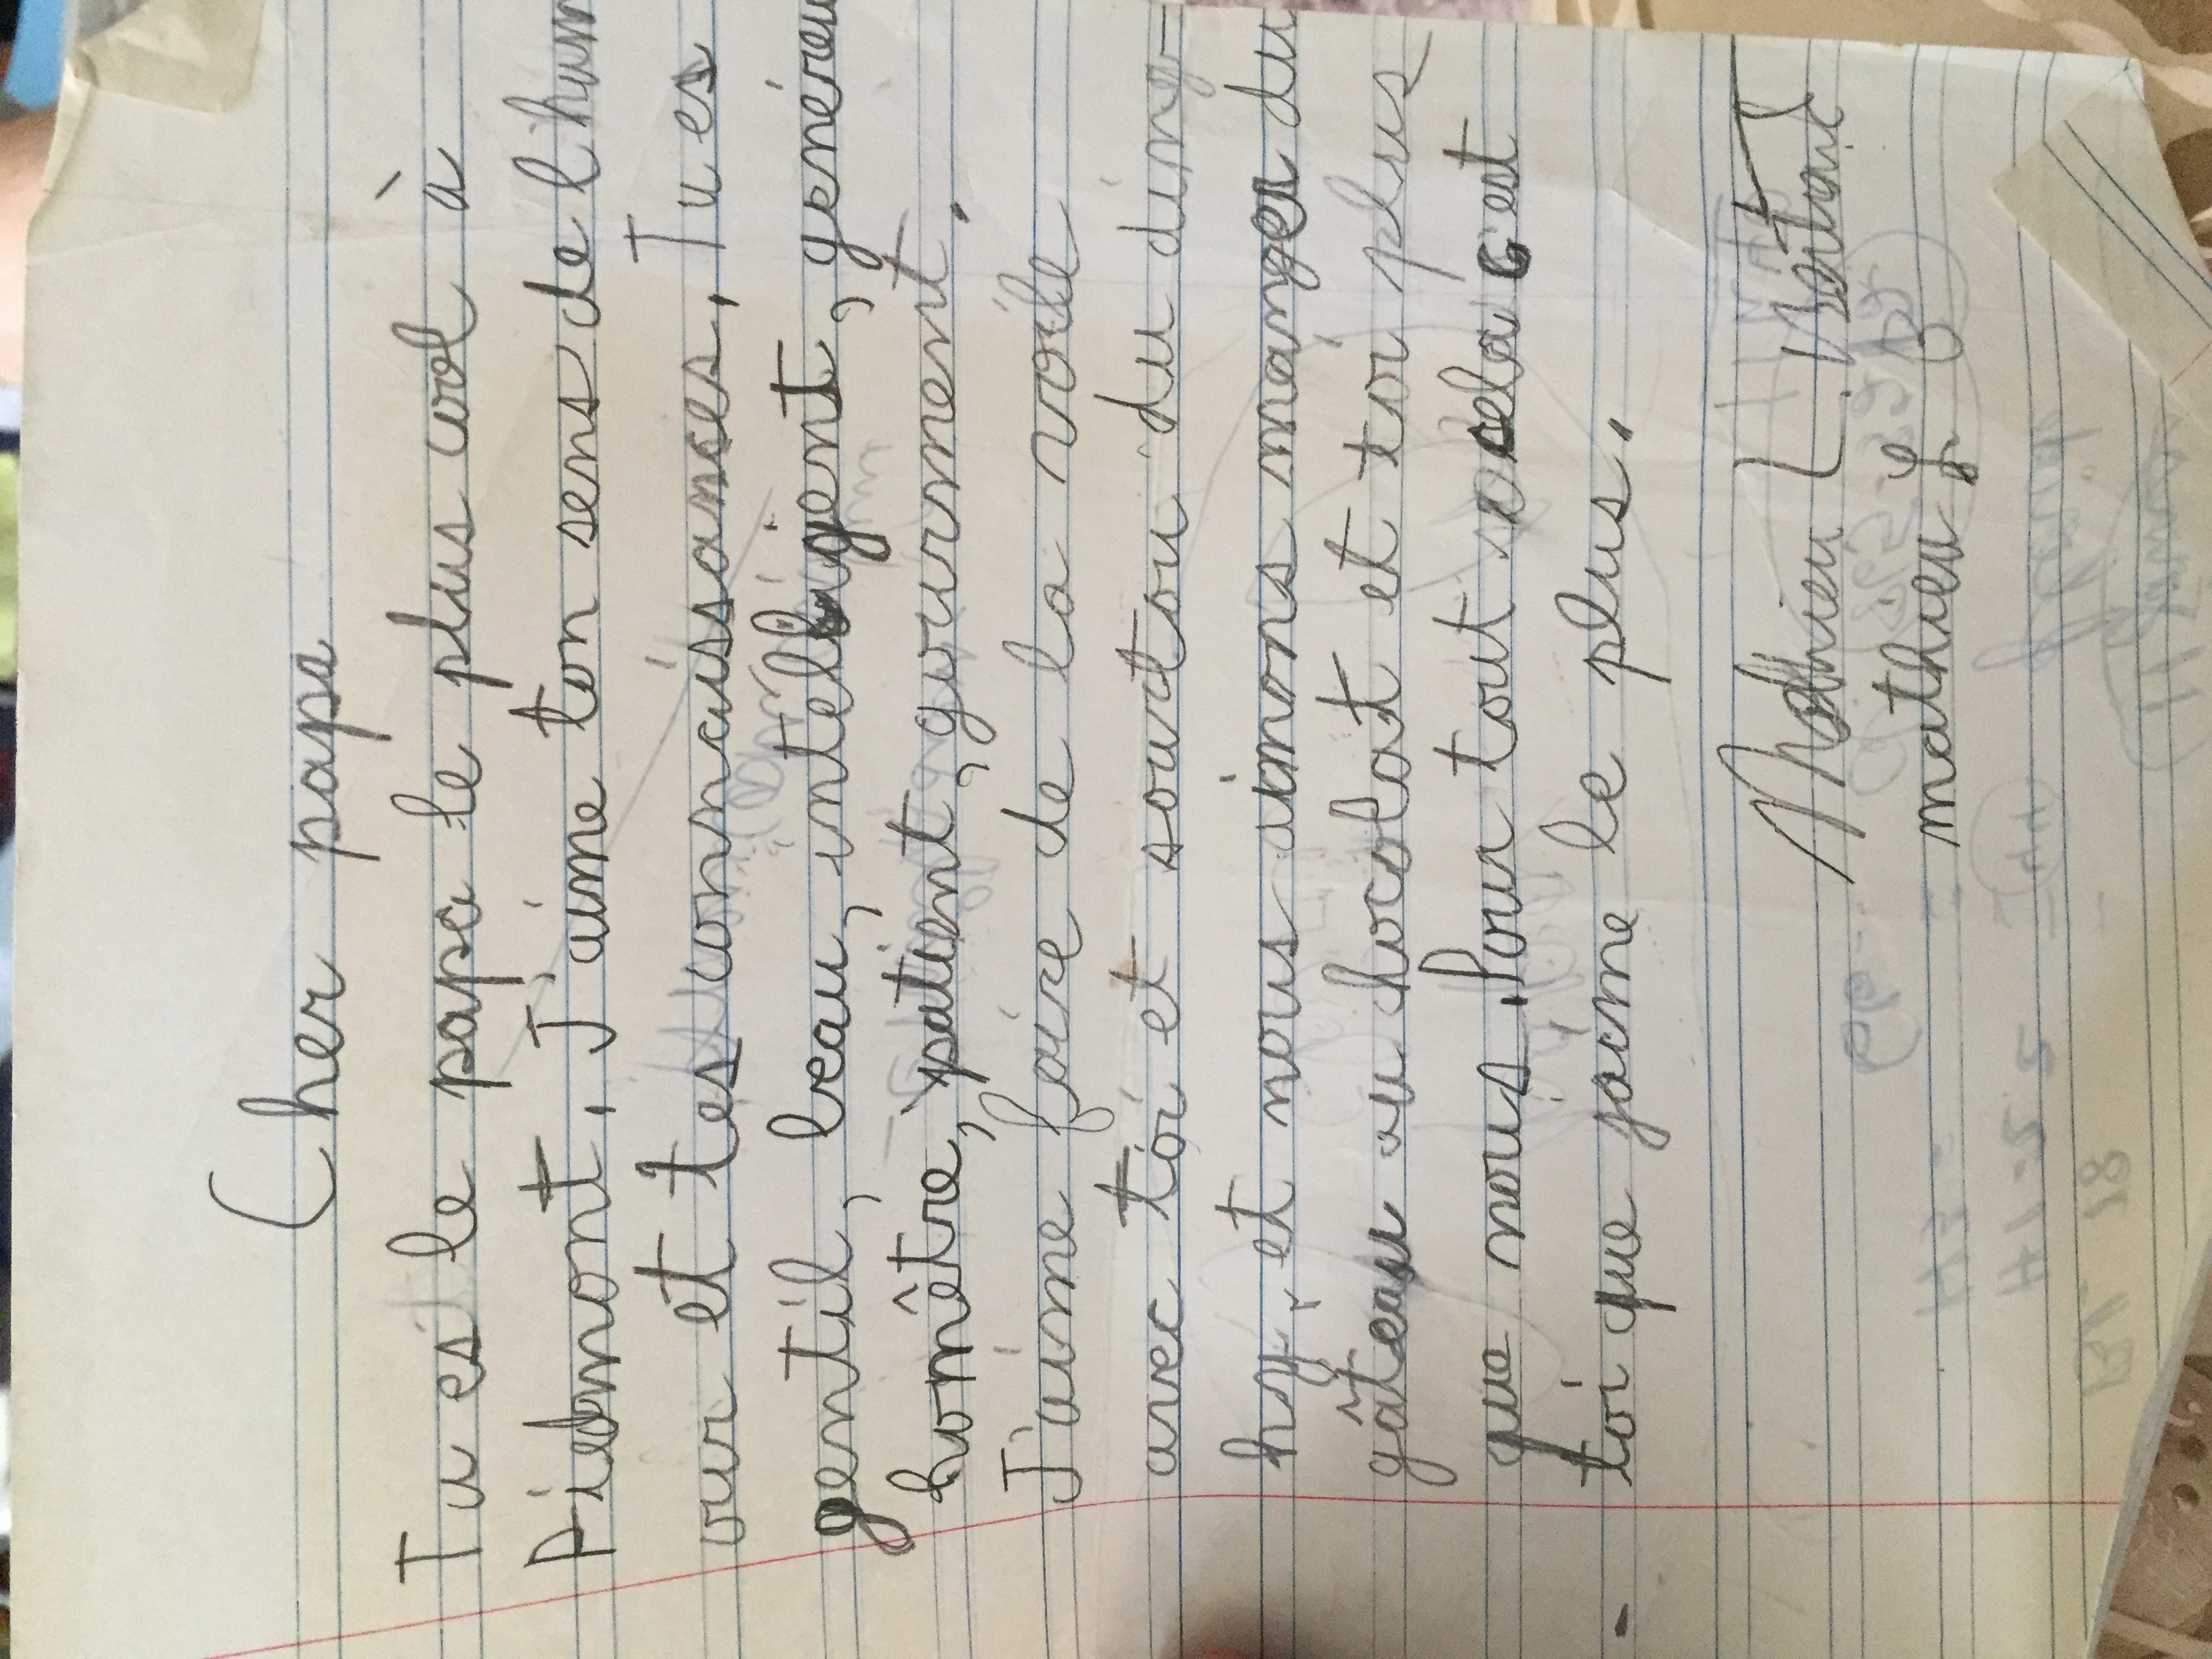 Cher papa
Tu es le papa le plus cool à
Piedmont. J'aime ton sens de l'hum
our et tes connaissances. Tu es
gentil, beau, intelligent, généreu
honnêtre, patient, gourment.
J'aime faire de la voile
avec toi et sourtou du ding-
hy, et nous aimons manger du
gâteau au chocolat et toi plus
que nous. Pour tout cela c'est
toi que jaime le plus.
Mathieu L.
mathieu L.